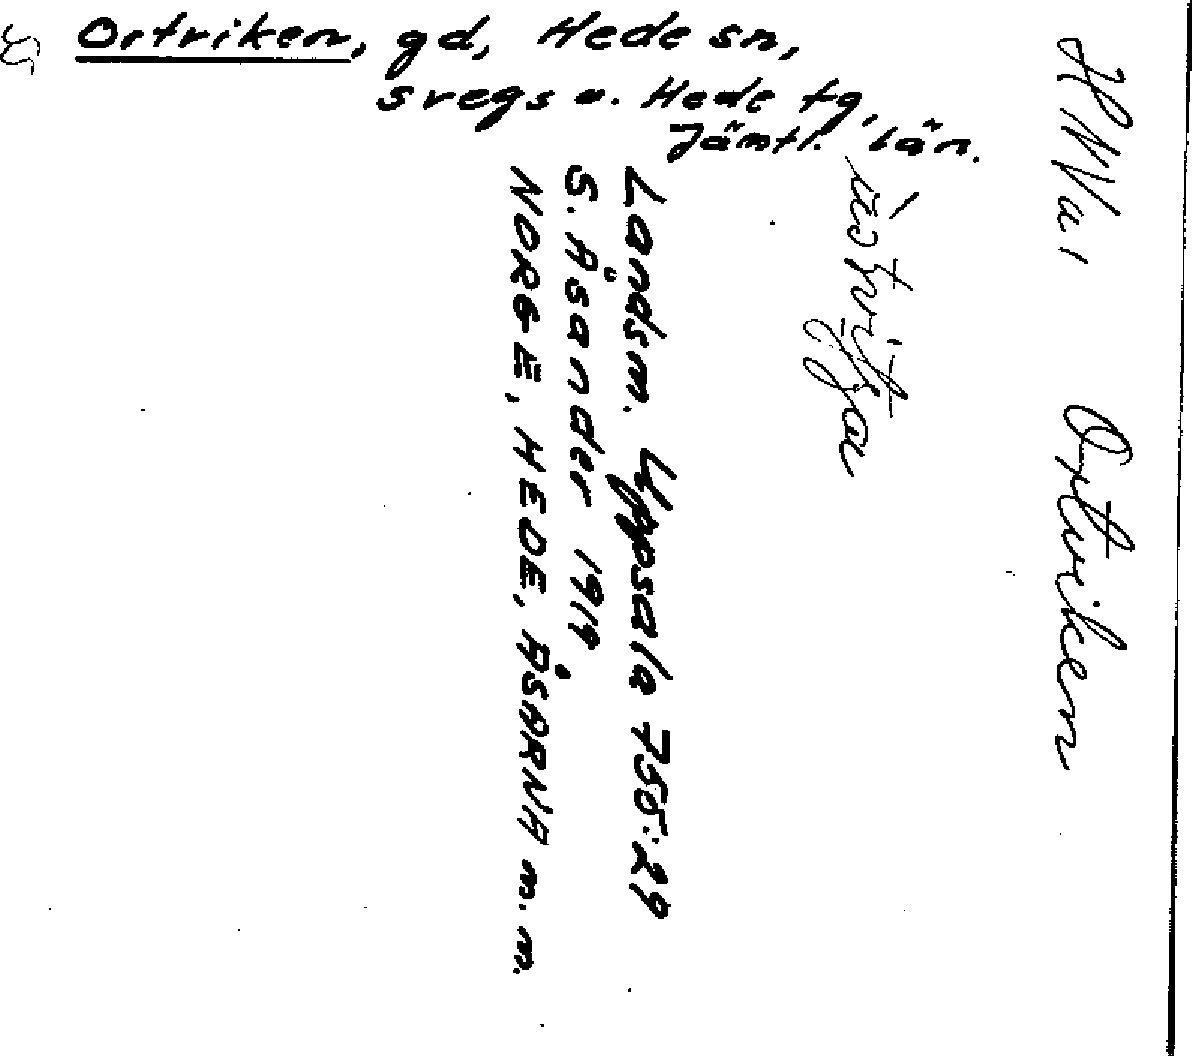 Ortviken, gd, Hede sn,
Svegs o. Hede tg,
Jämtl. län.
HNVa 1 Ortviken
Landsm. Uppsala 755:29
S. Åsander 1919
NORGE, HEDE, ÅSARNA m.m.